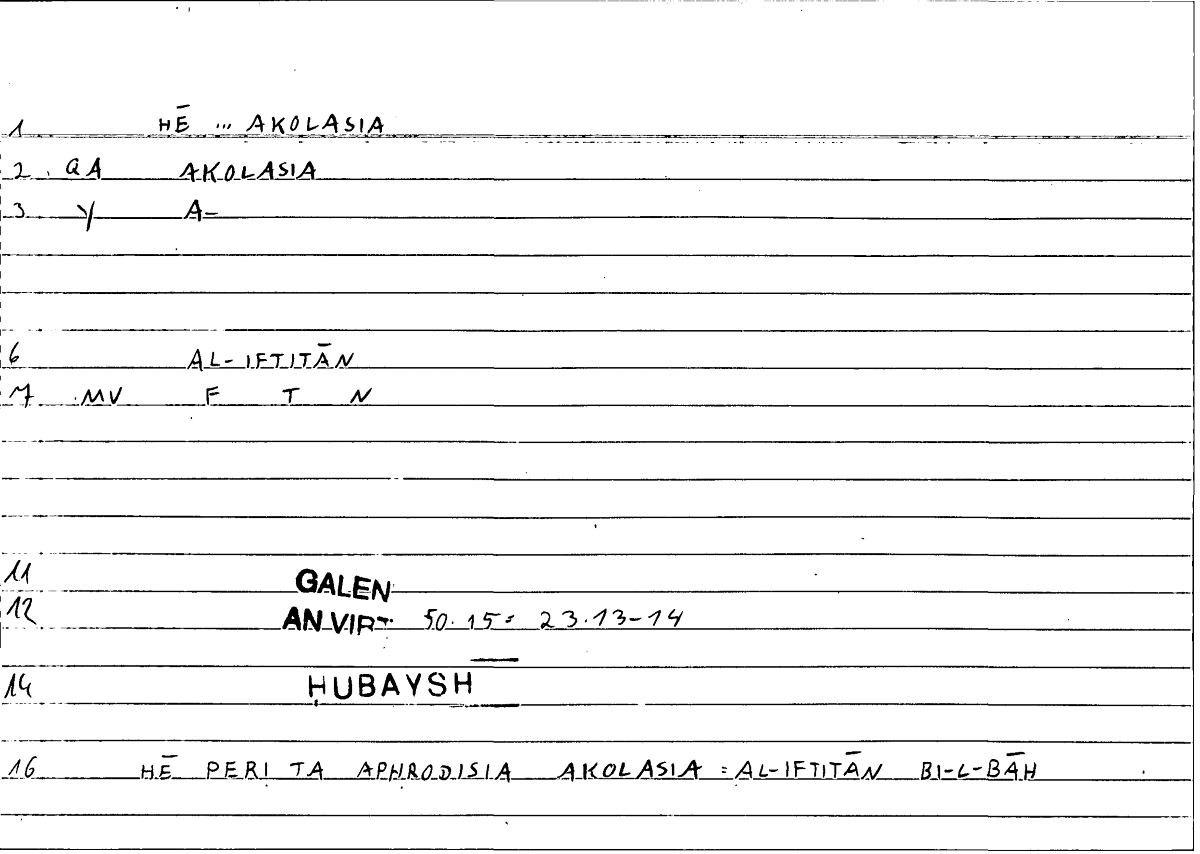 1 HĒ ... AKOLASIA
2. QA AKOLASIA
3 Y A-
6 AL-IFTITĀN
7 MV F T N
11 GALEN
12 AN VIRT 50.15 = 23.13-14
14 ḤUBAYSH
16 HĒ PERI TA APHRODISIA AKOLASIA = AL-IFTITĀN BI-L-BĀH